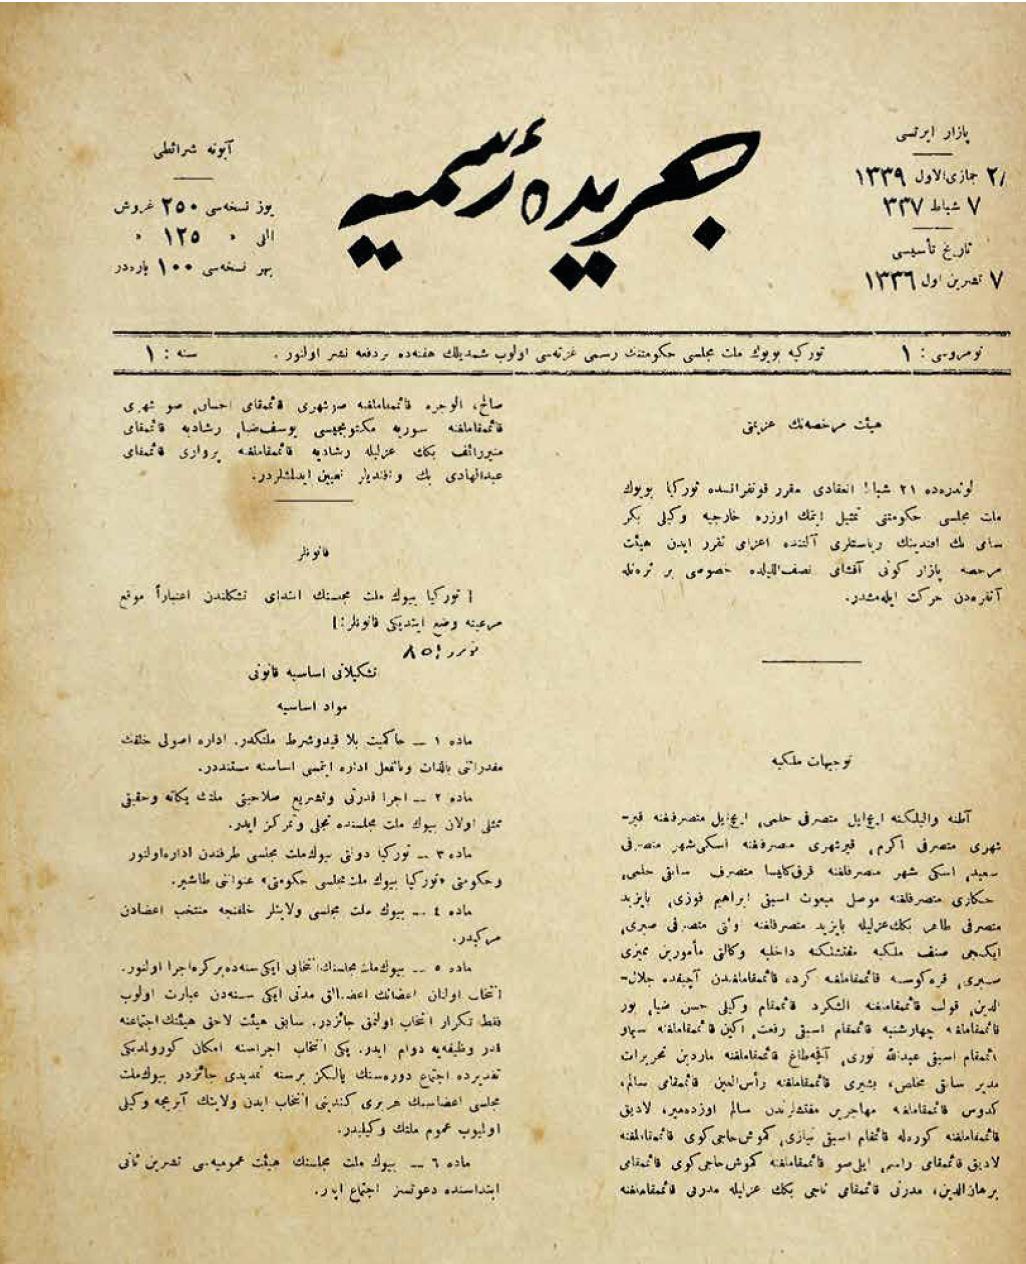 جريدهٔ رسميه
پازار ايرتسی
٢٨ جماذی‌الاول ١٣٣٩
٧ شباط ٣٣٧
تاريخ تأسيسی
٧ تشرين اول ١٣٣٦
آبونه شرائطی
يوز نسخه‌سی ٢٥٠ غروش
اللی ٠ ١٢٥ ٠
بهر نسخه‌سی ١٠٠ پاره‌در
نومروسی : ١
توركيه بويوك ملت مجلسی حكومتنك رسمی غزته‌سی اولوب شمديلك هفته‌ده بردفعه نشر اولنور .
سنه : ١
هيئت مرخصه‌نك عزيمتی
لوندره‌ده ٢١ شباط انعقادی مقرر قونفرانسده توركيا بويوك
ملت مجلسی حكومتنی تمثيل ايتمك اوزره خارجيه وكيلی بكر
سامی بك افندينك رياستلری آلتنده اعزامی تقرر ايدن هيئت
مرخصه پازار كونی آقشامی نصف‌الليلده خصوصی بر ترەنله
آنقره‌دن حركت ايله‌مشدر.
توجيهات ملكيه
آطنه واليلكنه ايچ‌ايل متصرفی حلمی، ايچ‌ايل متصرفلغنه قير-
شهری متصرفی اكرم، قيرشهری متصرفلغنه اسكی‌شهر متصرفی
سعيد، اسكی شهر متصرفلغنه قرق‌كليسا متصرف سابقی حلمی،
حكاری متصرفلغنه موصل مبعوث اسبقی ابراهيم فوزی، بايزيد
متصرفی طاهر بكك عزليله بايزيد متصرفلغنه اولتی متصرفی صبری،
ايكنجی صنف ملكيه مفتشلكنه داخليه وكالتی مأمورين مميزی
صبری، قره‌كوسه قائممقاملغنه كرده قائممقاملغندن آچيقده جلال-
الدين، قولپ قائممقاملغنه الشكرد قائممقام وكيلی حسن ضيا، پور
قائممقاملغنه چهارشنبه قائممقام اسبقی رفعت، اكين قائممقاملغنه
قائممقام اسبقی عبدالله نوری، آقچه‌طاغ قائممقاملغنه ماردين تحريرات
مدير سابقی مخلص، بشيری قائممقاملغنه رأس‌العين قائممقامی سالم،
كدوس قائممقاملغنه مهاجرين مفتشلرندن سالم اوزدمير، لاديق
قائممقاملغنه كورەله قائممقام اسبقی نيازی، كموش‌حاجی‌كوی قائممقاملغنه
لاديق قائممقامی راسم، ايلی‌صو قائممقاملغنه كموش‌حاجی‌كوی قائممقامی
برهان‌الدين، مدرنی قائممقامی ناجی بكك عزليله مدرنی قائممقاملغنه
صالح، الوجره قائممقاملغنه صوشهری قائممقامی احسان، صو شهری
قائممقاملغنه سوريه مكتوبجيسی يوسف‌ضيا، رشاديه قائممقامی
منيررائف بكك عزليله رشاديه قائممقاملغنه پرواری قائممقامی
عبدالهادی بك و افنديلر تعيين ايدلمشلردر.
قانونلر
[ توركيا بيوك ملت مجلسنك ابتدای تشكلندن اعتباراً موقع
مرعيته وضع ايتديكی قانونلر:]
نومرو ٨٥
تشكيلاتی اساسيه قانونی
مواد اساسيه
ماده ١ ــ حاكميت بلا قيدوشرط ملتكدر. اداره اصولی خلقك
مقدراتنی بالذات وبالفعل اداره ايتمسی اساسنه مستنددر.
ماده ٢ ــ اجرا قدرتی وتشريع صلاحيتی ملتك يكانه وحقيقی
ممثلی اولان بيوك ملت مجلسنده تجلی وتمركز ايدر.
ماده ٣ ــ توركيا دولتی بيوك‌ملت مجلسی طرفندن اداره‌اولنور
وحكومتی «توركيا بيوك ملت مجلسی حكومتی» عنوانی طاشير.
ماده ٤ ــ بيوك ملت مجلسی ولايتلر خلقنجه منتخب اعضادن
مركبدر.
ماده ٥ ــ بيوك‌ملت مجلسنك‌انتخابی ايكی‌سنه‌ده‌بركره‌اجرا اولنور.
انتخاب اولنان اعضانك اعضالق مدتی ايكی سنه‌دن عبارت اولوب
فقط تكرار انتخاب اولنمق جائزدر. سابق هيئت لاحق هيئتك‌اجتماعنه
قدر وظيفه‌يه دوام ايدر. يكی انتخاب اجراسنه امكان كورولمديكی
تقديرده اجتماع دوره‌سنك يالكز برسنه تمديدی جائزدر بيوك‌ملت
مجلسی اعضاسنك هربری كندينی انتخاب ايدن ولايتك آيريجه وكيلی
اولميوب عموم ملتك وكيليدر.
ماده ٦ ــ بيوك ملت مجلسنك هيئت عموميه‌سی تشرين ثانی
ابتداسنده دعوتسز اجتماع ايدر.